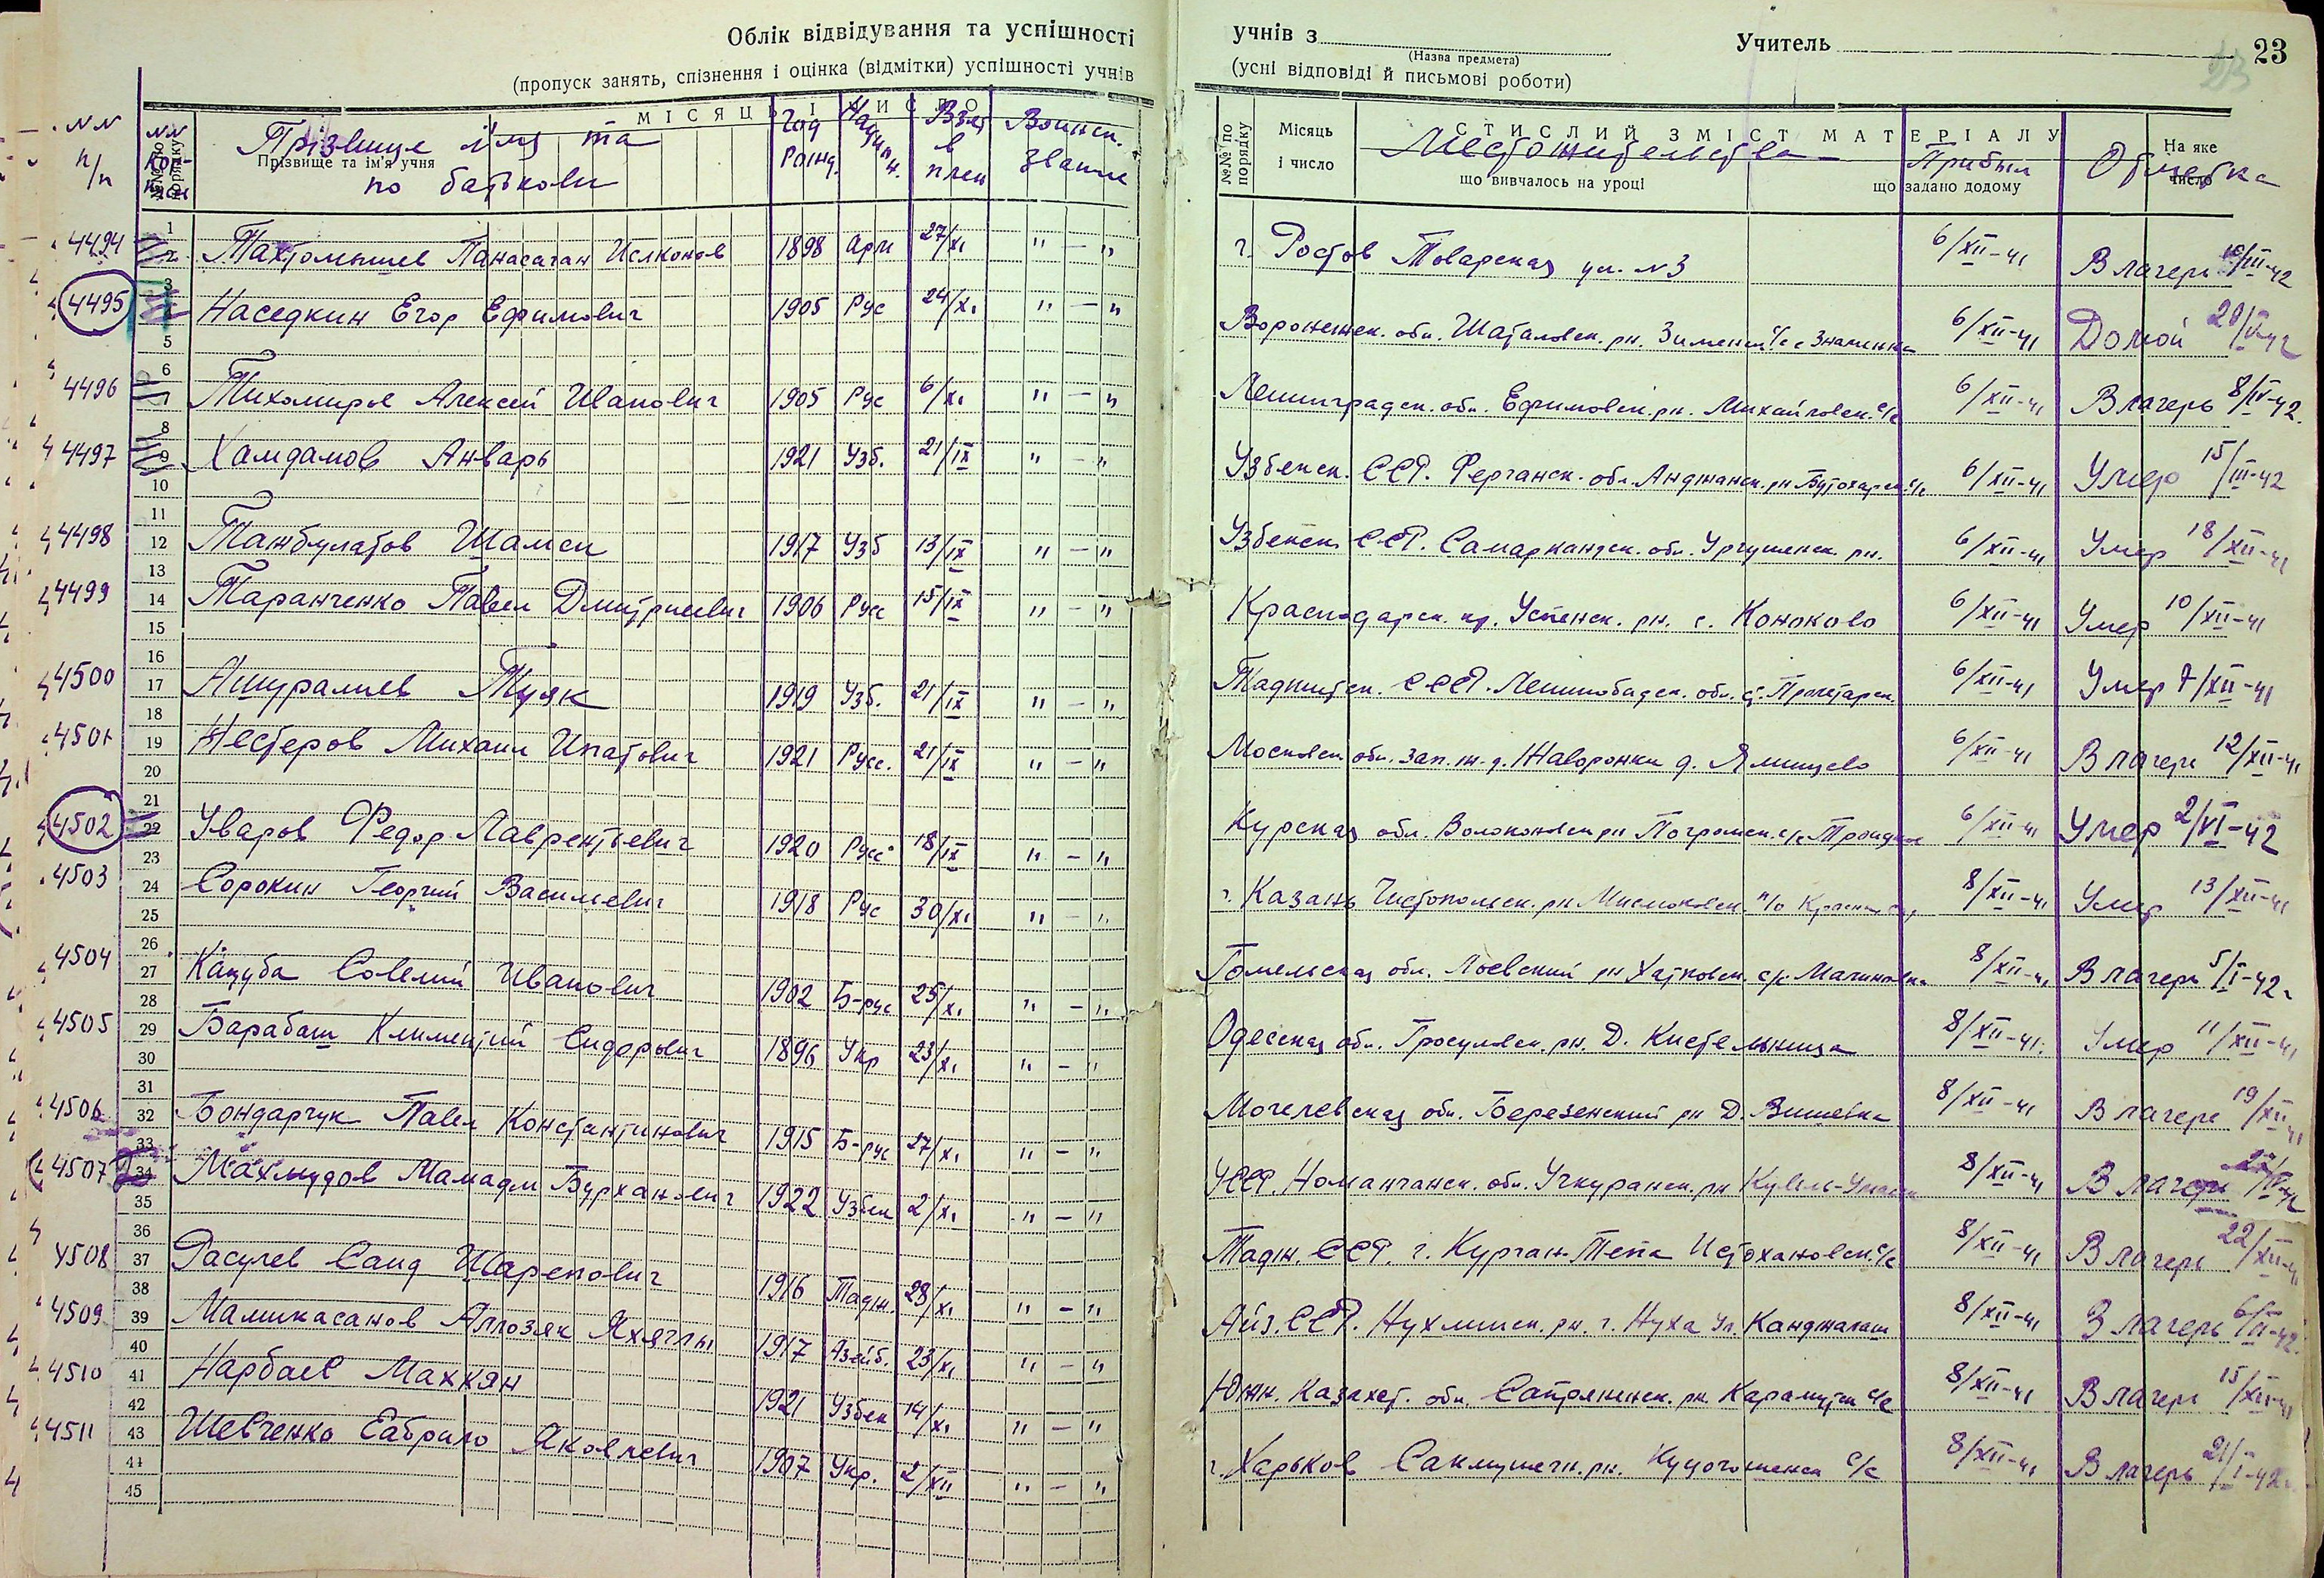 Облік відвідування та успішності учнів з Учитель 23
(Назва предмета)
(пропуск занять, спізнення і оцінка (відмітки) успішності учнів (усні відповіді й письмові роботи)
МІСЯЦЬ І ЧИСЛО
СТИСЛИЙ ЗМІСТ МАТЕРІАЛУ
№№ по порядку Прізвище та ім'я учня
№№ по порядку Місяць і число що вивчалось на уроці що задано додому На яке число
NN п/п Прізвище імя та по батькови Год рожд. Национ. Взят в плен Воинск. звание Местожительства Прибыл Отметка
4494 1898 Арм 27/XI " — " г. Ростов Товарская ул. N3 6/XII-41 В лагерь
4495 Наседкин Егор Ефимович 1905 Рус 24/XI " — " Воронежск. обл. Шаталовск. рн. 6/XII-41 Домой
4496 Тихомиров Алексей Иванович 1905 Рус 6/XI " — " Ленинградск. обл. Ефимовск. рн. Михайловск. с/с 6/XII-41 В лагерь 8/IV-42.
4497 Хамдамов Анварь 1921 Узб. 21/IX " — " Узбекск. ССР. Ферганск. обл. Анджанск. рн 6/XII-41 Умер 15/III-42
4498 Танбулатов Шамси 1917 Узб 13/IX " — " Узбекск. ССР. Самаркандск. обл. 6/XII-41 Умер 18/XII-41
4499 Таранченко Павел Дмитриевич 1906 Русс 15/IX " — " Краснодарск. кр. Успенск. рн. с. Коноково 6/XII-41 Умер 10/XII-41
4500 Ашуралиев 1919 Узб. 21/IX " — " Таджикск. ССР. Ленинобадск. обл. 6/XII-41 Умер 7/XII-41
4501 Нестеров Михаил Ипатович 1921 Русс. 21/IX " — " Московск. обл. Зап. ж. д. Жаворонки д. Ямищево 6/XII-41 В лагерь 12/XII-41
4502 Уваров Федор Лаврентьевич 1920 Русс 18/IX " — " Курская обл. Волоконовск рн Погромск. с/с 6/XII-41 Умер 2/VI-42
4503 Сорокин Георгий Васильевич 1918 Рус 30/XI " — " г. Казань Чистопольск. рн 8/XII-41 Умер 13/XII-41
4504 Кацуба Совелий Иванович 1902 Б-рус 25/XI " — " Гомельская обл. Лоевский рн Хатковск. с/с Малиновка 8/XII-41 В лагерь 5/I-42
4505 Барабаш Климентий Сидорович 1896 Укр 23/XI " — " Одесская обл. Гросуловск. рн. Д. 8/XII-41. Умер 11/XII-41
4506 Бондарчук Павел Константинович 1915 Б-рус 27/XI " — " Могелевская обл. Березенский рн Д. Вишевка 8/XII-41 В лагерь 19/XII-41
4507 Махмудов Мамадм Бурханович 1922 Узбек 2/XI " — " УССР. Номанганск. обл. Учкуранск. рн 8/XII-41 В лагерь
4508 Расулев Саид Шарепович 1916 Тадж. 28/XI " — " Тадж. ССР. г. Курган-Тепа 8/XII-41 В лагерь 22/XII-41
4509 Мамикасанов 1917 Азейб. 23/XI " — " Айз. ССР. Нухинск. рн. г. Нуха ул. 8/XII-41 В лагерь 6/II-42.
4510 Нарбаев Маххян 1921 Узбек 14/XI " — " Южн. Казахст. обл. рн. Карамурт с/с 8/XII-41 В лагерь
4511 Шевченко Яковлевич 1907 Укр. 2/XII " — " г. Харьков рн. с/с 8/XII-41 В лагерь 21/I-42
1
2
3
4
5
6
7
8
9
10
11
12
13
14
15
16
17
18
19
20
21
22
23
24
25
26
27
28
29
30
31
32
33
34
35
36
37
38
39
40
41
42
43
44
45